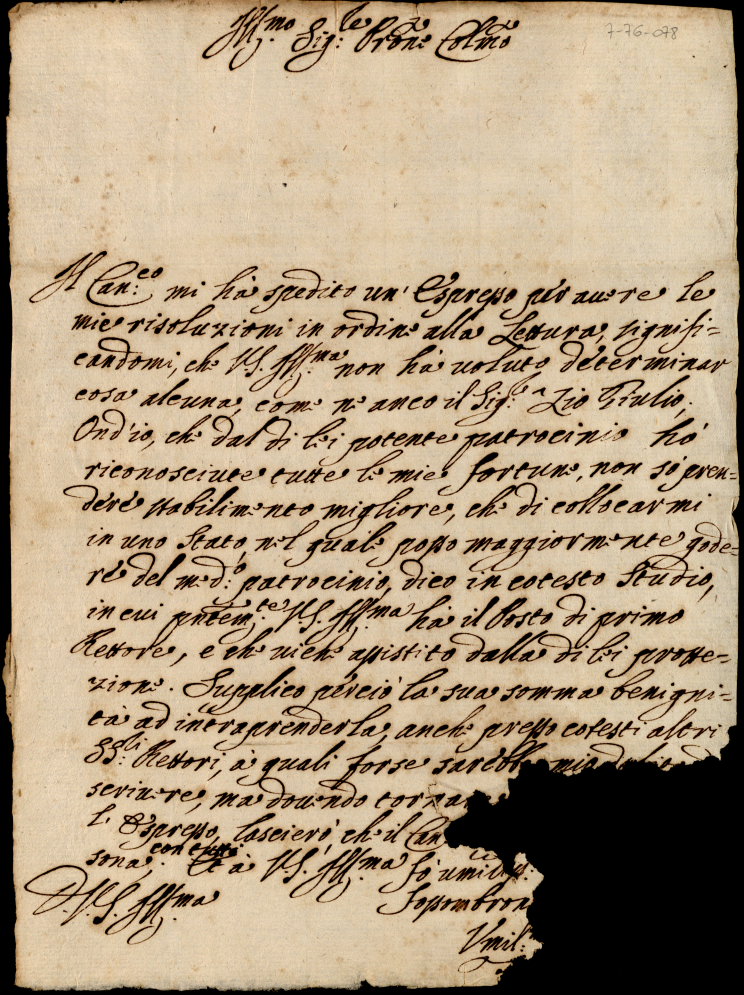 Ill:mo Sig:re Prone Colmo
7-76-078
Il Can:co mi hà spedito un' Espresso per auere le
mie risoluzioni in ordine alla Lettura, signifi=
candomi, che V.S. Ill:ma non hà uoluto determinar
cosa alcuna, come ne anco il Sig:r Zio Giulio;
Ond'io, che dal di lei potente patrocinio hò
riconosciute tutte le mie fortune, non sò pren=
dere stabilimento migliore, che di collocarmi
in uno Stato, nel quale posso maggiormente gode=
re del med:o patrocinio, dico in cotesto Studio,
in cui pntem:te V.S. Ill:ma hà il Posto di primo
Rettore, e che uiene assistito dalla di lei protte=
zione. Supplico perciò la sua somma benigni=
tà ad intraprenderla, anche presso cotesti altri
SS:ri Rettori, à quali forse sarebbe mio
scriuere, ma douendo torna
l' Espresso, lascierò, che il Can
sona, con tutti. Et à V.S. Ill:ma fò umilis:
D. V.S. Ill:ma
Sopombron
Vmil: